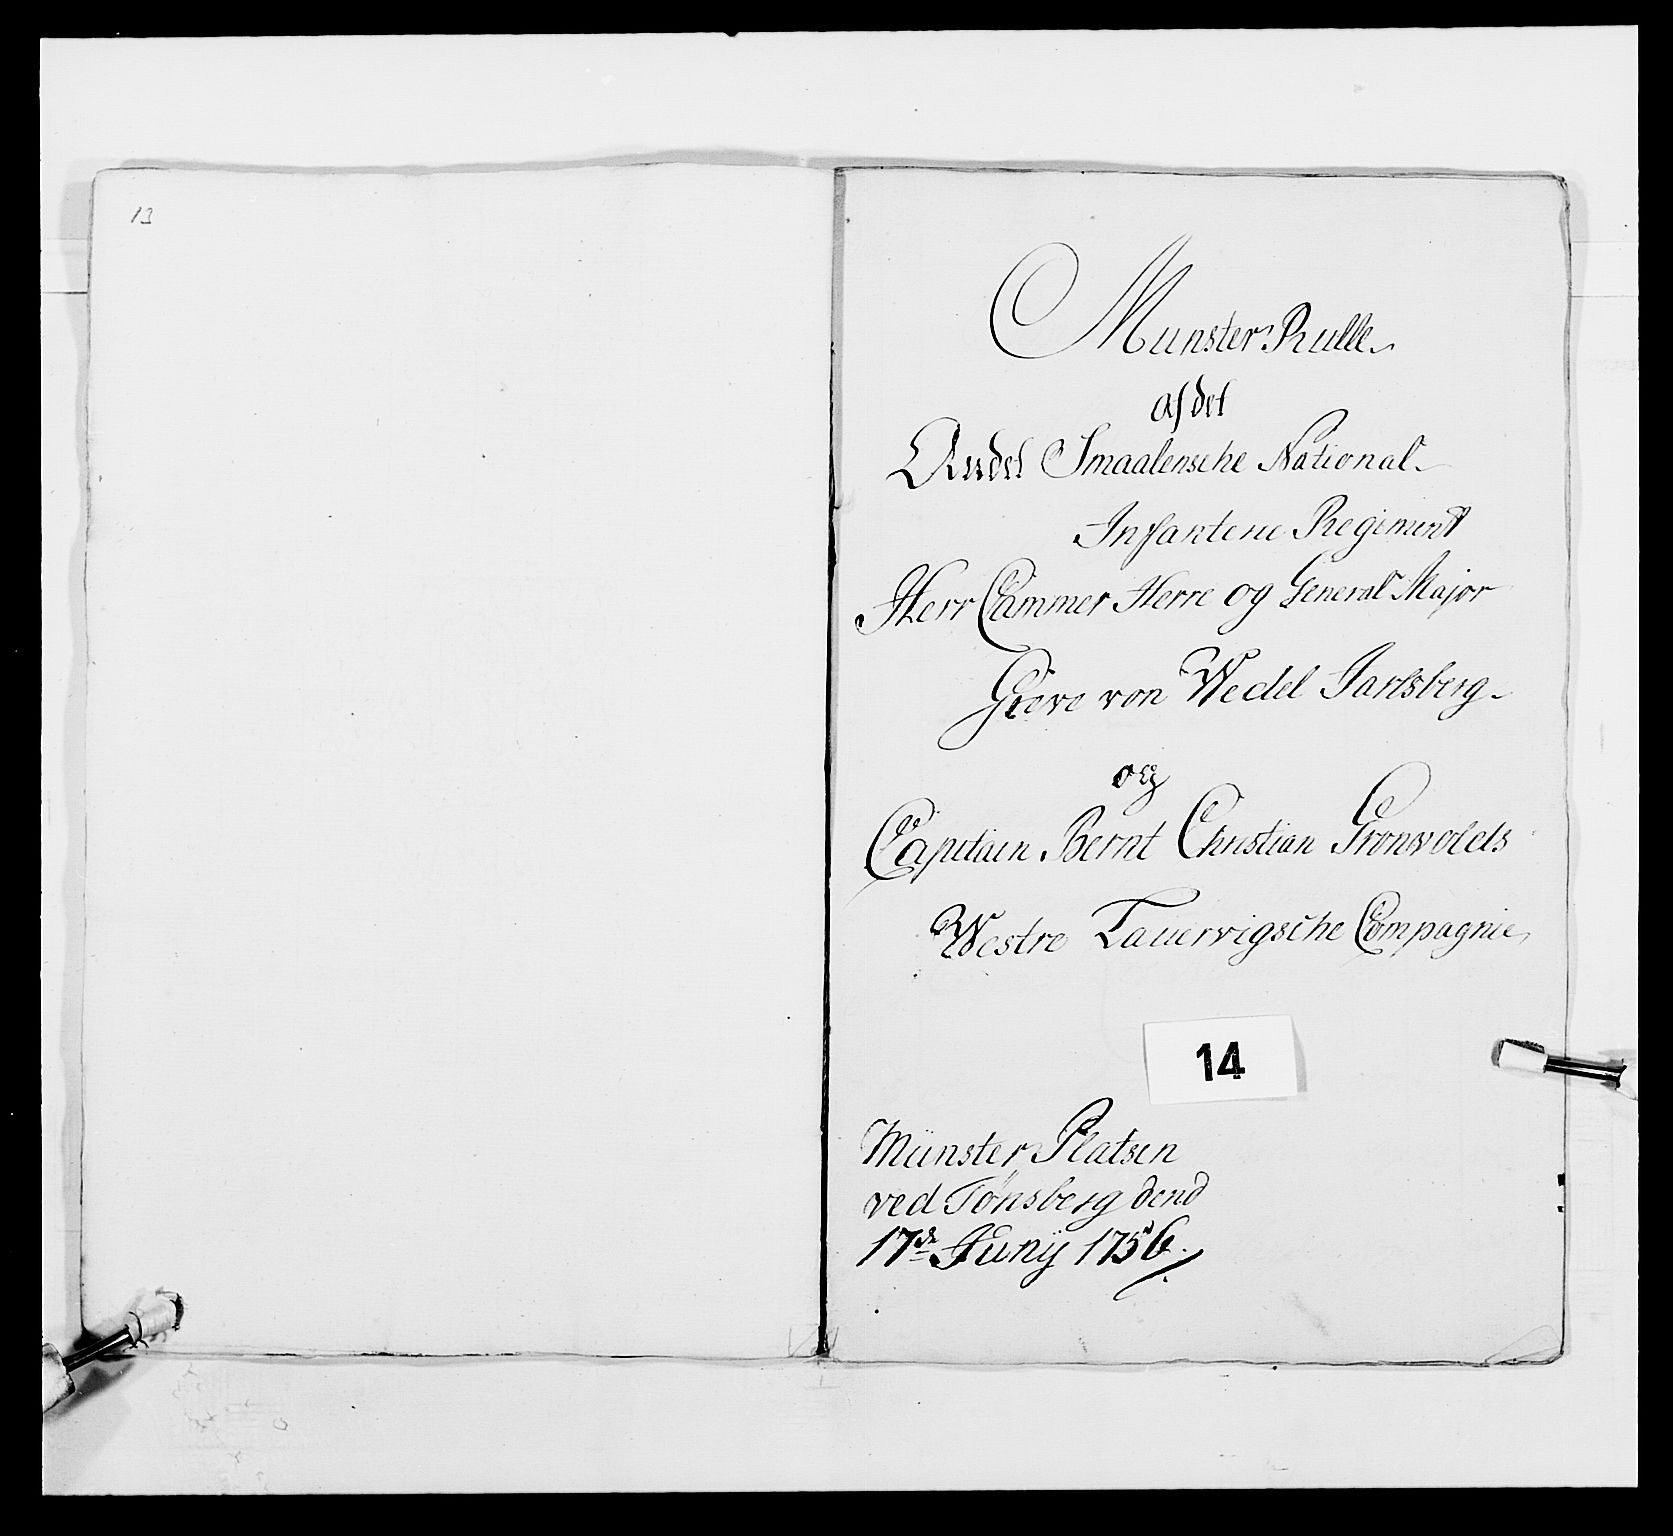 13
Munster Rulle
af det
Andet Smaalensche National
Infanterie Regiment
Herr Cammer Herre og General Major
Greve von Wedel Jarlsberg
og
Capitain Bernt Christian Gronvolds
Westre Lauervigsche Compagnie
14
Münster Platsen
ved Tønsberg dend
17de Junÿ 1756